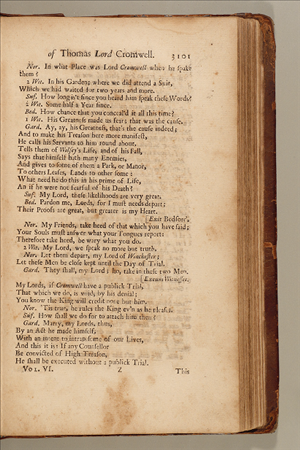 of Thomas Lord Cromwell. 3101
Nor. In what Place was Lord Cromwell when he spake
them?
2 Wit. In his Garden; where we did attend a Suit,
Which we had waited for two years and more.
Suf. How long is't since you heard him speak these Words?
2 Wit. Some half a Year since.
Bed. How chance that you conceal'd it all this time?
1 Wit. His Greatness made us fear; that was the cause.
Gard. Ay, ay, his Greatness, that's the cause indeed;
And to make his Treason here more manifest,
He calls his Servants to him round about,
Tells them of Wolsey's Life, and of his Fall,
Says that himself hath many Enemies,
And gives to some of them a Park, or Manor,
To others Leases, Lands to other some:
What need he do this in his prime of Life,
An if he were not fearful of his Death?
Suf. My Lord, these likelihoods are very great.
Bed. Pardon me, Lords, for I must needs depart;
Their Proofs are great, but greater is my Heart.
[Exit Bedford.
Nor. My Friends, take heed of that which you have said;
Your Souls must answer what your Tongues report:
Therefore take heed, be wary what you do.
2 Wit. My Lord, we speak no more but truth.
Nor. Let them depart, my Lord of Winchester;
Let these Men be close kept until the Day of Trial.
Gard. They shall, my Lord: ho, take in these two Men.
[Exeunt Witnesses.
My Lords, if Cromwell have a publick Trial,
That which we do, is void, by his denial;
You know the King will credit none but him.
Nor. 'Tis true, he rules the King ev'n as he pleases.
Suf. How shall we do for to attach him then?
Gard. Marry, my Lords, thus,
By an Act he made himself,
With an intent to intrap some of our Lives,
And this it is: If any Counsellor
Be convicted of High Treason,
He shall be executed without a publick Trial.
VOL. VI. Z This